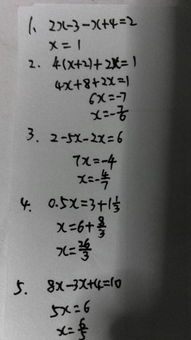 1. 2x-3-x+4=2
x=1
2. 4(x+2)+2x=1
4x+8+2x=1
6x=-7
x=-7/6
3. 2-5x-2x=6
7x=-4
x=-4/7
4. 0.5x=3+1 1/3
x=6+8/3
x=26/3
5. 8x-3x+4=10
5x=6
x=6/5